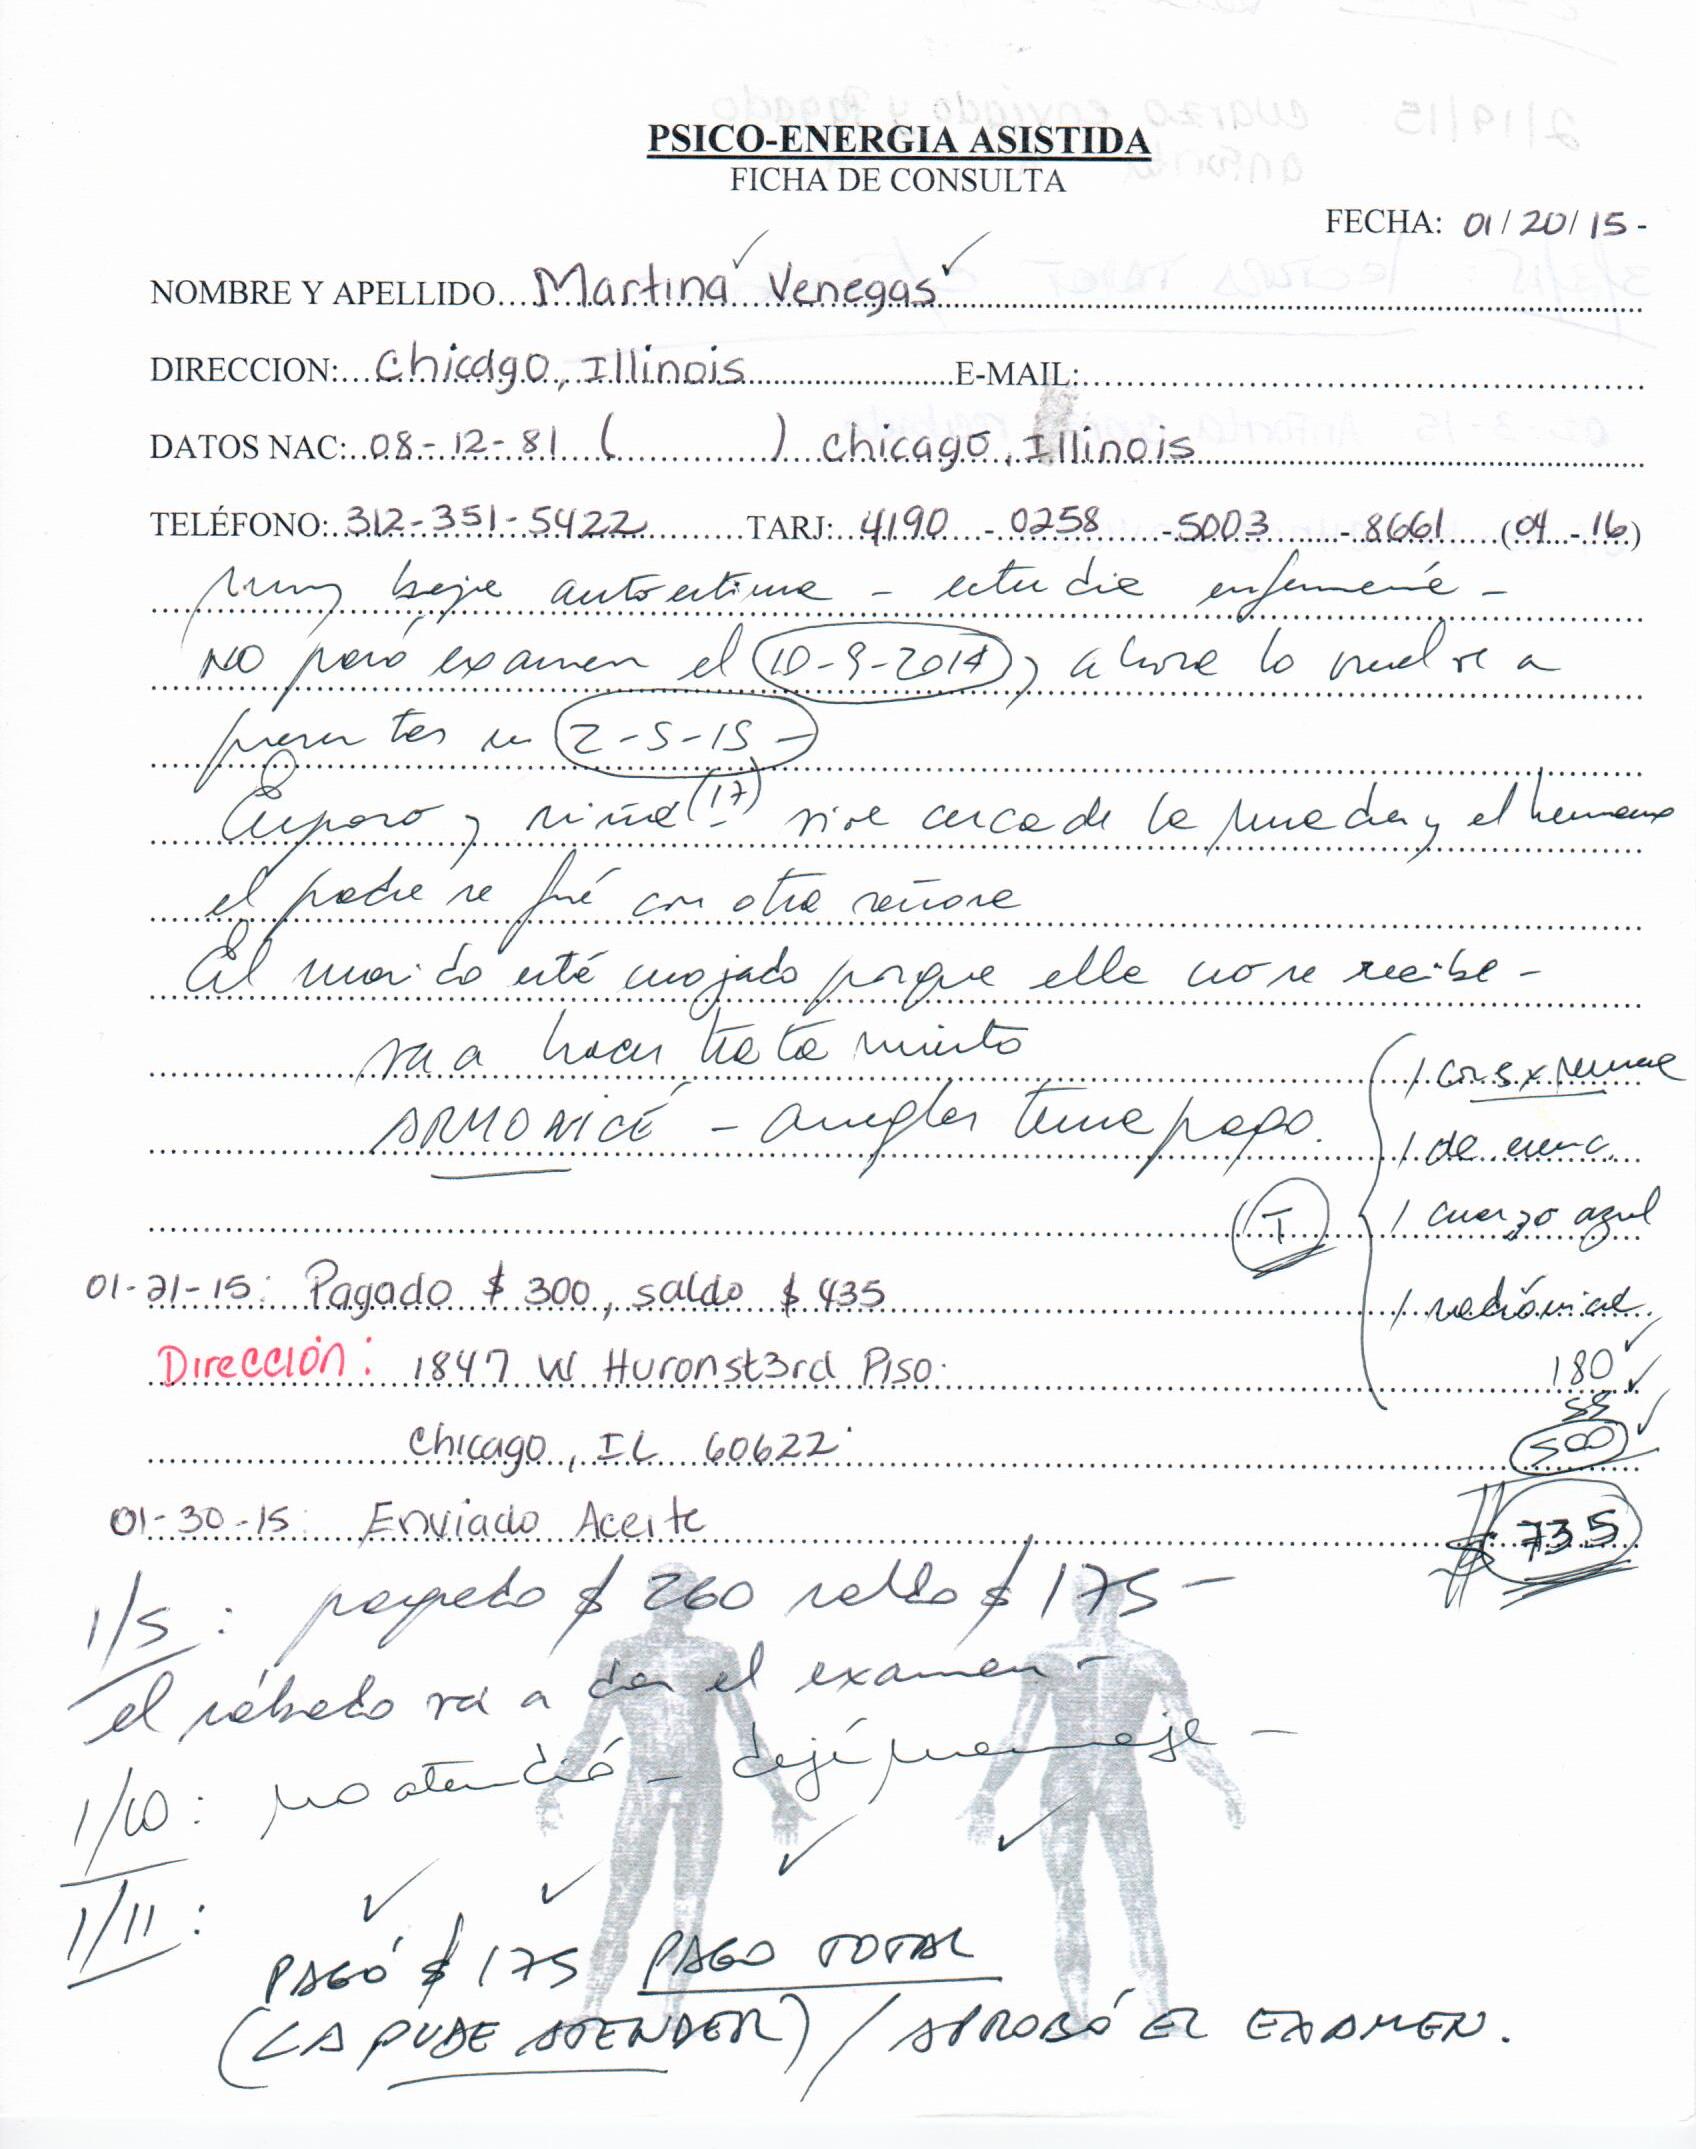 PSICO-ENERGIA ASISTIDA
FICHA DE CONSULTA
FECHA: 01/20/15-
NOMBRE Y APELLIDO Martina Venegas
DIRECCION: Chicago, Illinois E-MAIL:
DATOS NAC: 08-12-81 ( ) Chicago, Illinois
TELÉFONO: 312-351-5422 TARJ: 4190 - 0258 - 5003 - 8661 (04 - 16)
muy baja autoestima - estudia enfermería -
NO pasó examen el 10-9-2014 y ahora lo vuelve a
presentar en 2-5-15 -
Esposo y niña (17) vive cerca de la mamá y el hermano
el padre se fué con otra señora
El marido está enojado porque ella no se recibe -
va a hacer tratamiento
ARMONICÉ - arreglar tema pago.
1 con s x
1 de
1 cuarzo azul
1 radiónica
T
180
55
500
$ 735
01-21-15: Pagado $ 300, saldo $ 435
Dirección: 1847 W Huron st 3rd Piso.
Chicago, IL 60622
01-30-15: Enviado Aceite
1/5: pagado $ 260 saldo $ 175 -
el sábado va a dar el examen -
1/10: no atendió - dejé mensaje -
1/11:
PAGÓ $ 175 PAGO TOTAL
(LA PUDE ATENDER) / APROBÓ EL EXAMEN.